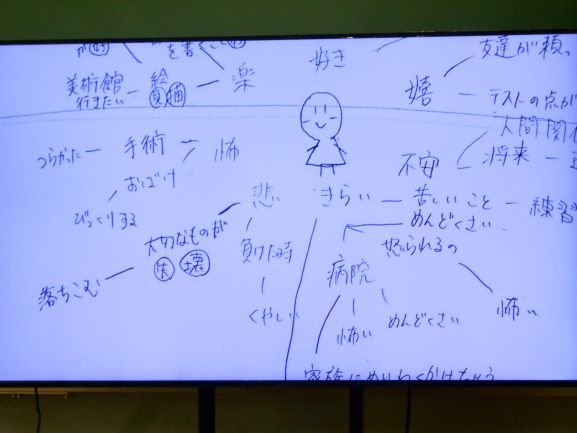 を書くこと
好き
友達が頼
楽
絵
見 描
美術館
行きたい
嬉
テストの点が
人間関
つらかった
手術
怖
不安
将来
おばけ
びっくりする
悲
きらい
苦しいこと
練習
めんどくさい
大切なものが
失 壊
負けた時
怒られるの
落ちこむ
病院
くやしい
怖い
めんどくさい
怖い
家族にめいわくかけちゃう